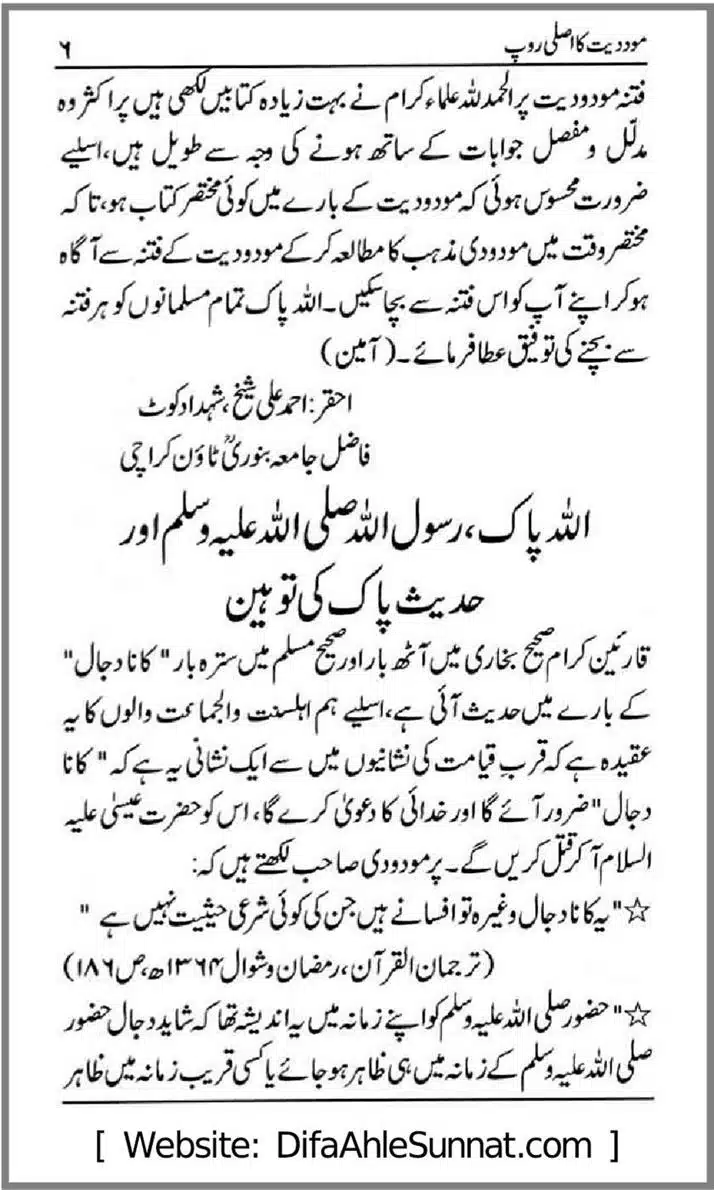 مودودیت کا اصلی روپ ۶
فتنہ مودودیت پر الحمدللہ علماء کرام نے بہت زیادہ کتابیں لکھی ہیں پر اکثر وہ
مدلّل و مفصل جوابات کے ساتھ ہونے کی وجہ سے طویل ہیں، اسلیے
ضرورت محسوس ہوئی کہ مودودیت کے بارے میں کوئی مختصر کتاب ہو، تاکہ
مختصر وقت میں مودودی مذہب کا مطالعہ کر کے مودودیت کے فتنہ سے آگاہ
ہو کر اپنے آپ کو اس فتنہ سے بچا سکیں۔ اللہ پاک تمام مسلمانوں کو ہر فتنہ
سے بچنے کی توفیق عطا فرمائے۔ (آمین)
احقر: احمد علی شیخ، شہدادکوٹ
فاضل جامعہ بنوریؒ ٹاؤن کراچی
اللہ پاک، رسول اللہ صلی اللہ علیہ وسلم اور
حدیث پاک کی توہین
قارئین کرام صحیح بخاری میں آٹھ بار اور صحیح مسلم میں سترہ بار "کانا دجال"
کے بارے میں حدیث آئی ہے، اسلیے ہم اہلسنت والجماعت والوں کا یہ
عقیدہ ہے کہ قربِ قیامت کی نشانیوں میں سے ایک نشانی یہ ہے کہ "کانا
دجال" ضرور آئے گا اور خدائی کا دعویٰ کرے گا، اس کو حضرت عیسیٰ علیہ
السلام آ کر قتل کریں گے۔ پر مودودی صاحب لکھتے ہیں کہ:
☆"یہ کانا دجال وغیرہ تو افسانے ہیں جن کی کوئی شرعی حیثیت نہیں ہے "
(ترجمان القرآن، رمضان و شوال ۱۳۶۴ھ، ص ۱۸۶)
☆" حضور صلی اللہ علیہ وسلم کو اپنے زمانہ میں یہ اندیشہ تھا کہ شاید دجال حضور
صلی اللہ علیہ وسلم کے زمانہ میں ہی ظاہر ہو جائے یا کسی قریب زمانہ میں ظاہر
[ Website: DifaAhleSunnat.com ]